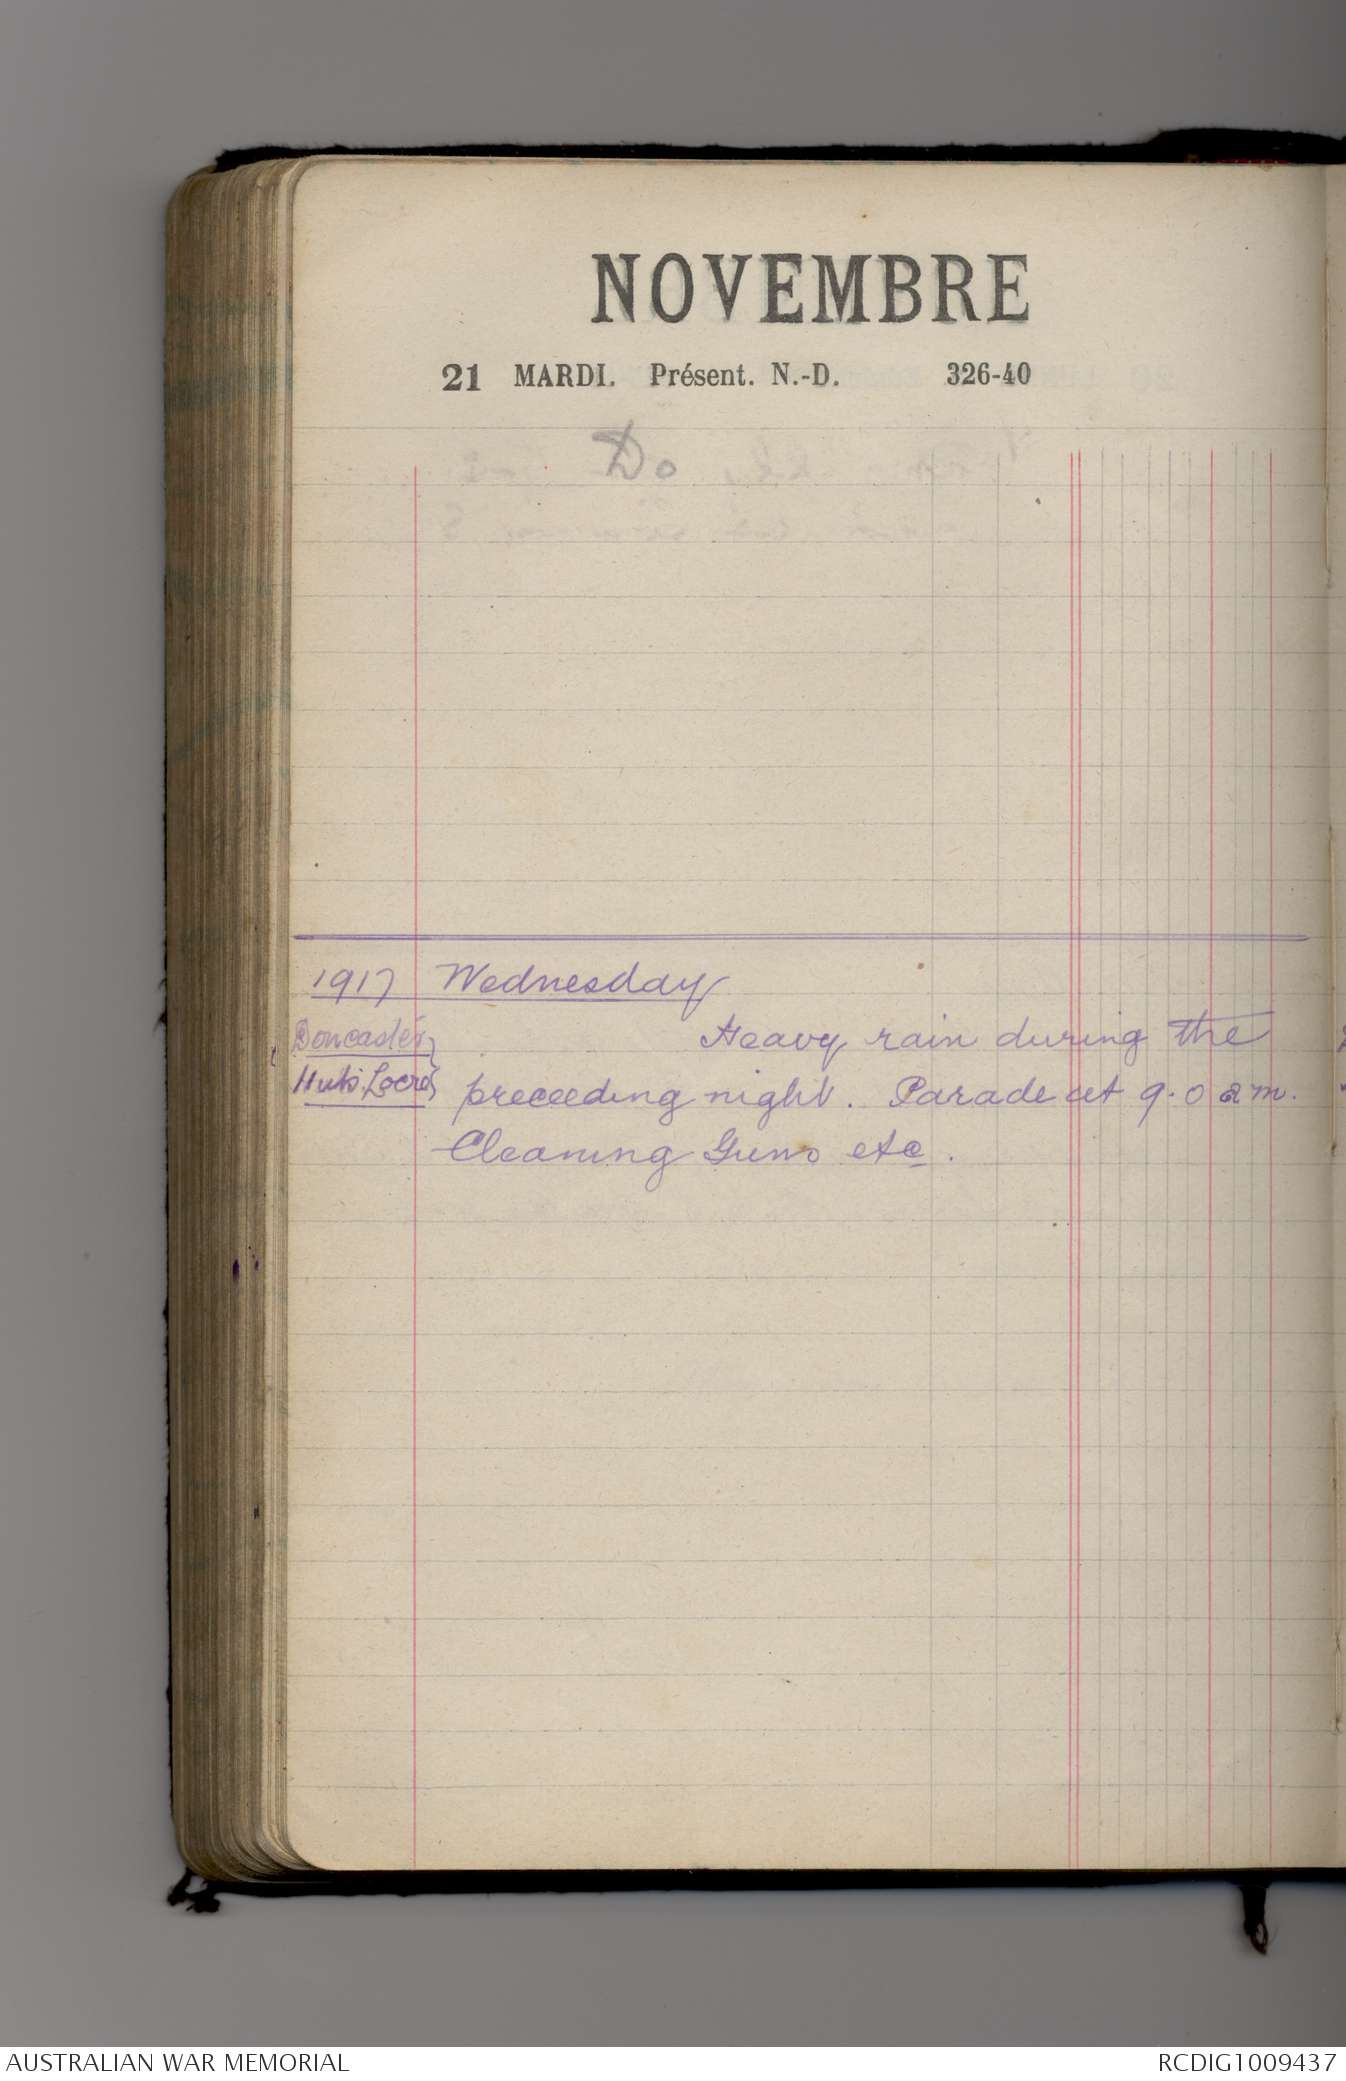 NOVEMBRE
21 MARDI. Présent. N.-D. 326-40
Do
1917 Wednesday
Doncaster Heavy rain during the
Huts. Locre preceeding night. Parade at 9.0 am.
Cleaning Guns etc.
AUSTRALIAN WAR MEMORIAL RCDIG1009437